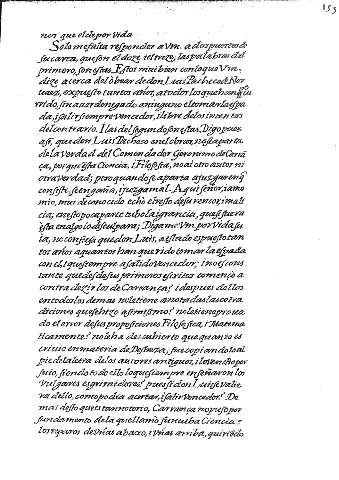 153
nor que el de por Vida
Solo me falta responder a Vm. a dos puntos de
su carta, que son el doze i el treze, las palabras del
primero, son estas. Estoi mui bien con lo que Vm.
dize acerca del obrar de don Luis Pacheco de Nar
vaez, expuesto tantos años, a todos los que han que
rido, sin aver denegado a ninguno el tomar la espa
da, i salir siempre vencedor, i libre de los intentos
del contrario. I las del segundo son estas. Digo pues
assi, que don Luis Pacheco en el obrar, no se aparta
de la verdad del Comendador Geronimo de Carrã
ça, porque esta Ciencia, i Filosofia, no al otro autor ni
otra verdad; pero quando se aparta a juzgar en q
consiste se engaña, i juzga mal. Aqui señor, i amo
mio, mui de conocido echò el resto de su rencor, i mali
cia; en esto poca parte tubo la ignorancia, que si fuera
esta en algo lo desculpara; Digame Vm. por Vida su
ia, no confiessa que don Luis, a estado espuesto tan
tos años a quantos han querido tomar la espada
con el, i que siempre a salido vencedor; i no es cons
tante que desde sus primeros escritos començo a
contradezir los de Carrança? i despues dellos
en todos los demas no le tiene anotadas las contra
diciones que se hizo a si mismo? no le tiene prova
do el error de sus proposiciones Filosoficas, i Matema
ticamente? no le ha descubierto que quanto es
crivio en materia de Destreza, fue copiandolo al
pie de la letra de los autores antiguos, i lo vendio por
suio, siendo todo ello lo que siempre enseñaron los
Vulgares esgrimidores? pues si don Luis se valie
ra dello, como podia acertar, i salir Vencedor? De
mas desto que es tan notorio, Carrança no puso por
fundamento de la que llamò, su nueba Ciencia
los reparos de uñas abaxo, i uñas arriba, quiriẽdo